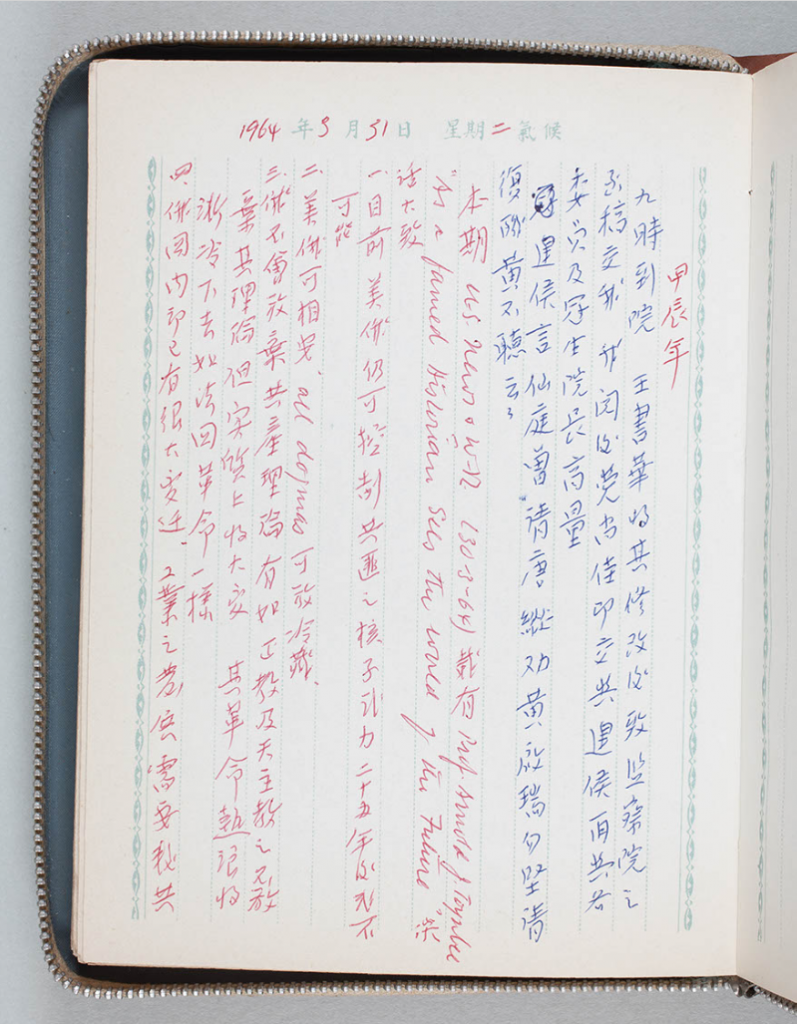 1964年3月31日 星期二氣候
甲辰年
九時到院 王書華將其修改後致監察院之
函稿交我 我閱後覺尚佳即交與運侯再與各
委員及冠生院長商量
運侯言仙庭曾請唐縱勸黃啟瑞勿堅請
復職黃不聽云云
本期 U.S. News & W.R. (30-3-64) 載有 Prof Arnold J Toynbee
"As a famed Historian Sees the World of the Future" 談
話大致
一目前美俄仍可控制共匪之核子武力二十五年後則不
可能
二、美俄可相安、all dogmas 可放冷藏、
三、俄不會放棄共產理論有如正教及天主教之不放
棄其理論但實質上將大變 其革命熱浪將
漸冷下去如法國革命一樣
四、俄國內部已有很大變遷、工業之發展需要教共